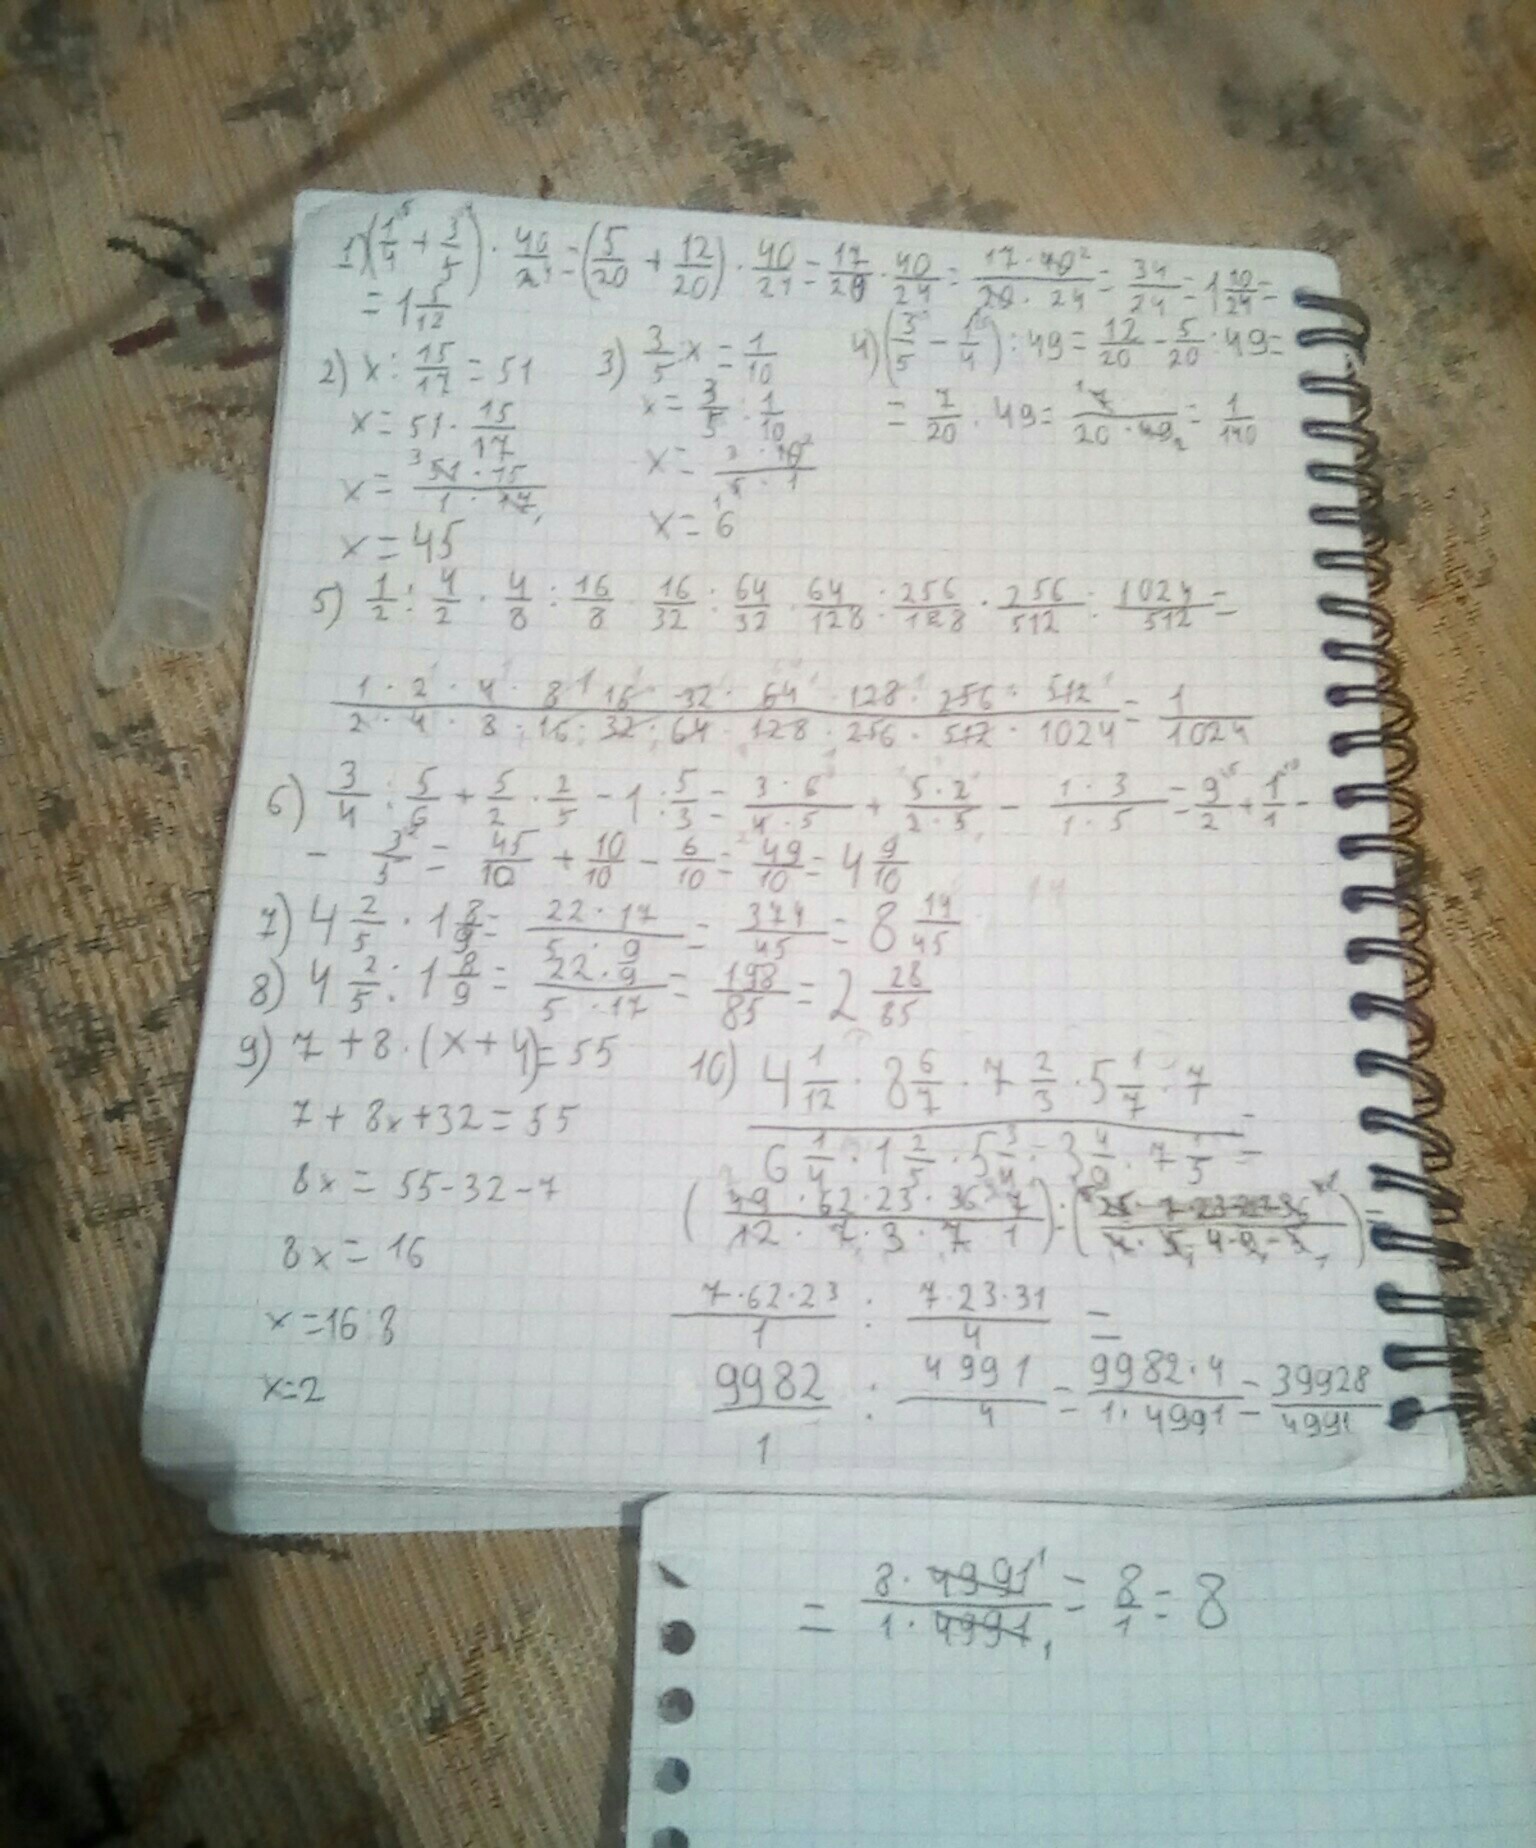 1) (1/4 + 3/5) · 40/24 = (5/20 + 12/20) · 40/24 = 17/20 · 40/24 = 17 · 40/20 · 24 = 34/24 = 1 10/24 =
= 1 5/12
2) x : 15/17 = 51
x = 51 · 15/17
x = 51 · 15/1 · 17
x = 45
3) 3/5 : x = 1/10
x = 3/5 : 1/10
x = 3 · 10/5 · 1
x = 6
4) (3/5 - 1/4) : 49 = 12/20 - 5/20 : 49 =
= 7/20 · 49 = 7/20 · 49 = 1/140
5) 1/2 : 4/2 · 4/8 : 16/8 · 16/32 : 64/32 · 64/128 : 256/128 · 256/512 : 1024/512 =
1 · 2 · 4 · 8 · 16 · 32 · 64 · 128 · 256 · 512/2 · 4 · 8 · 16 · 32 · 64 · 128 · 256 · 512 · 1024 = 1/1024
6) 3/4 : 5/6 + 5/2 · 2/5 - 1 : 5/3 = 3 · 6/4 · 5 + 5 · 2/2 · 5 - 1 · 3/1 · 5 = 9/2 + 1/1 -
- 3/5 = 45/10 + 10/10 - 6/10 = 49/10 = 4 9/10
7) 4 2/5 · 1 8/9 = 22 · 17/5 · 9 = 374/45 = 8 14/45
8) 4 2/5 : 1 8/9 = 22 · 9/5 · 17 = 198/85 = 2 28/85
9) 7 + 8 · (x + 4) = 55
7 + 8x + 32 = 55
8x = 55 - 32 - 7
8x = 16
x = 16 : 8
x = 2
10) 4 1/12 · 8 6/7 · 7 2/3 · 5 1/7 · 7/6 1/4 · 1 2/5 · 5 3/4 · 3 4/9 · 7 1/5 =
(49 · 62 · 23 · 36 · 7/12 · 7 · 3 · 7 · 1) : (25 · 7 · 23 · 31 · 36/4 · 5 · 4 · 9 · 5) =
7 · 62 · 23/1 : 7 · 23 · 31/4 =
9982/1 : 4991/4 = 9982 · 4/1 · 4991 = 39928/4991
= 8 · 4991/1 · 4991 = 8/1 = 8